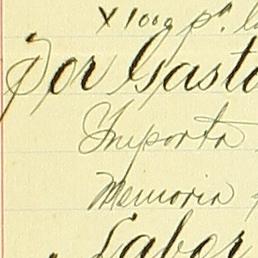 X 1000 pa. l
Por Gasto
Importa
Memoria
Labor